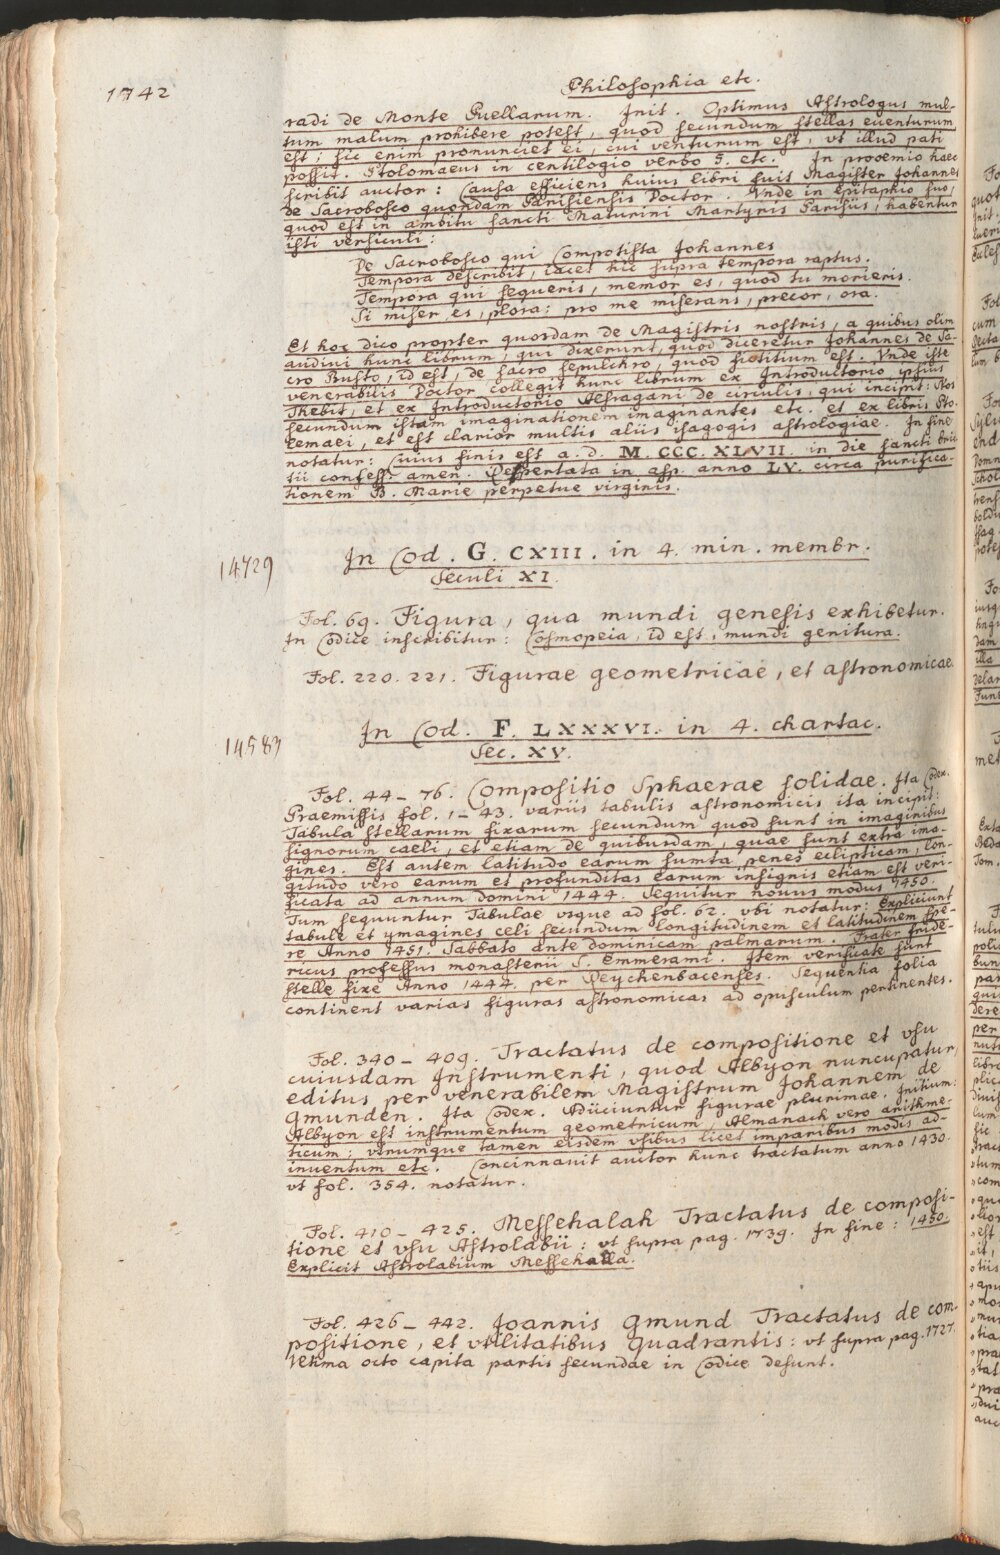 1742
Philosophia etc.
radi de Monte Puellarum. Init. Optimus Astrologus mul-
tum malum prohibere potest, quod secundum stellas euenturum
est; sic enim pronunciet ei, cui venturum est, vt illud pati
possit. Ptolomaeus in centilogio verbo 5. etc. In prooemio haec
scribit auctor: Causa efficiens huius libri fuit Magister Johannes
de Sacrobosco quondam Parisiensis Doctor. Vnde in Epitaphio suo,
quod est in ambitu sancti Maturini Martyris Parisius, habentur
isti versiculi:
De Sacrobosco qui Compotista Johannes
Tempora describit, iacet hic supra tempora raptus.
Tempora qui sequeris, memor es, quod tu morieris.
Si miser es, plora: pro me miserans, precor, ora.
Et hoc dico propter quordam de Magistris nostris, a quibus olim
audiui hunc librum, qui dixerunt, quod diceretur Johannes de Sa-
cro Busto, id est, de sacro sepulchro, quod fictitium est. Vnde iste
venerabilis Doctor collegit hunc librum ex Introductorio ipsius
Thebit, et ex Introductorio Alfragani de circulis, qui incipit: Nos
secundum istam imaginationem imaginantes etc. et ex libris Pto-
lemaei, et est clarior multis aliis isagogis astrologiae. In fine
notatur: Cuius finis est a. d. M. CCC. XLVII. in die sancti Bric-
tii confess. amen. Respertata in asp. anno LV. circa purifica-
tionem B. Marie perpetue virginis.
14729
In Cod. G. CXIII. in 4. min. membr.
Seculi XI.
Fol. 69. Figura, qua mundi genesis exhibetur.
In Codice inscribitur: Cosmopeia, id est, mundi genitura.
Fol. 220. 221. Figurae geometricae, et astronomicae.
14583
In Cod. F. LXXXVI. in 4. chartac.
Sec. XV.
Fol. 44 – 76. Compositio Sphaerae solidae. Ita Codex.
Praemissis fol. 1 – 43. variis tabulis astronomicis ita incipit:
Tabula stellarum fixarum secundum quod sunt in imaginibus
signorum caeli, et etiam de quibusdam, quae sunt extra ima-
gines. Est autem latitudo earum sumta penes eclipticam, lon-
gitudo vero earum et profunditas earum insignis etiam est veri-
ficata ad annum domini 1444. Sequitur nouus modus 1450.
Tum sequuntur Tabulae vsque ad fol. 62. vbi notatur: Expliciunt
tabule et ymagines celi secundum longitudinem et latitudinem spe-
re Anno 1451. Sabbato ante dominicam palmarum. Frater Fride-
ricus professus monasterii S. Emmerami. Item verificate sunt
stelle fixe Anno 1444. per Reychenbacenses. Sequentia folia
continent varias figuras astronomicas ad opusculum pertinentes.
Fol. 340 – 409. Tractatus de compositione et vsu
cuiusdam Instrumenti, quod Albyon nuncupatur,
editus per venerabilem Magistrum Johannem de
Gmunden. Ita Codex. Adiiciuntur figurae plurimae. Initium:
Albyon est instrumentum geometricum, Almanach vero arithme-
ticum; vtrumque tamen eisdem vsibus licet imparibus modis ad-
inuentum etc. Concinnauit auctor hunc tractatum anno 1430.
vt fol. 354. notatur.
Fol. 410 – 425. Messehalah Tractatus de composi-
tione et vsu Astrolabii: vt supra pag. 1739. In fine: 1450.
Explicit Astrolabium Messehalla.
Fol. 426 – 442. Joannis Gmund Tractatus de com-
positione, et vtilitatibus Quadrantis: vt supra pag. 1727.
Vltima octo capita partis secundae in Codice desunt.